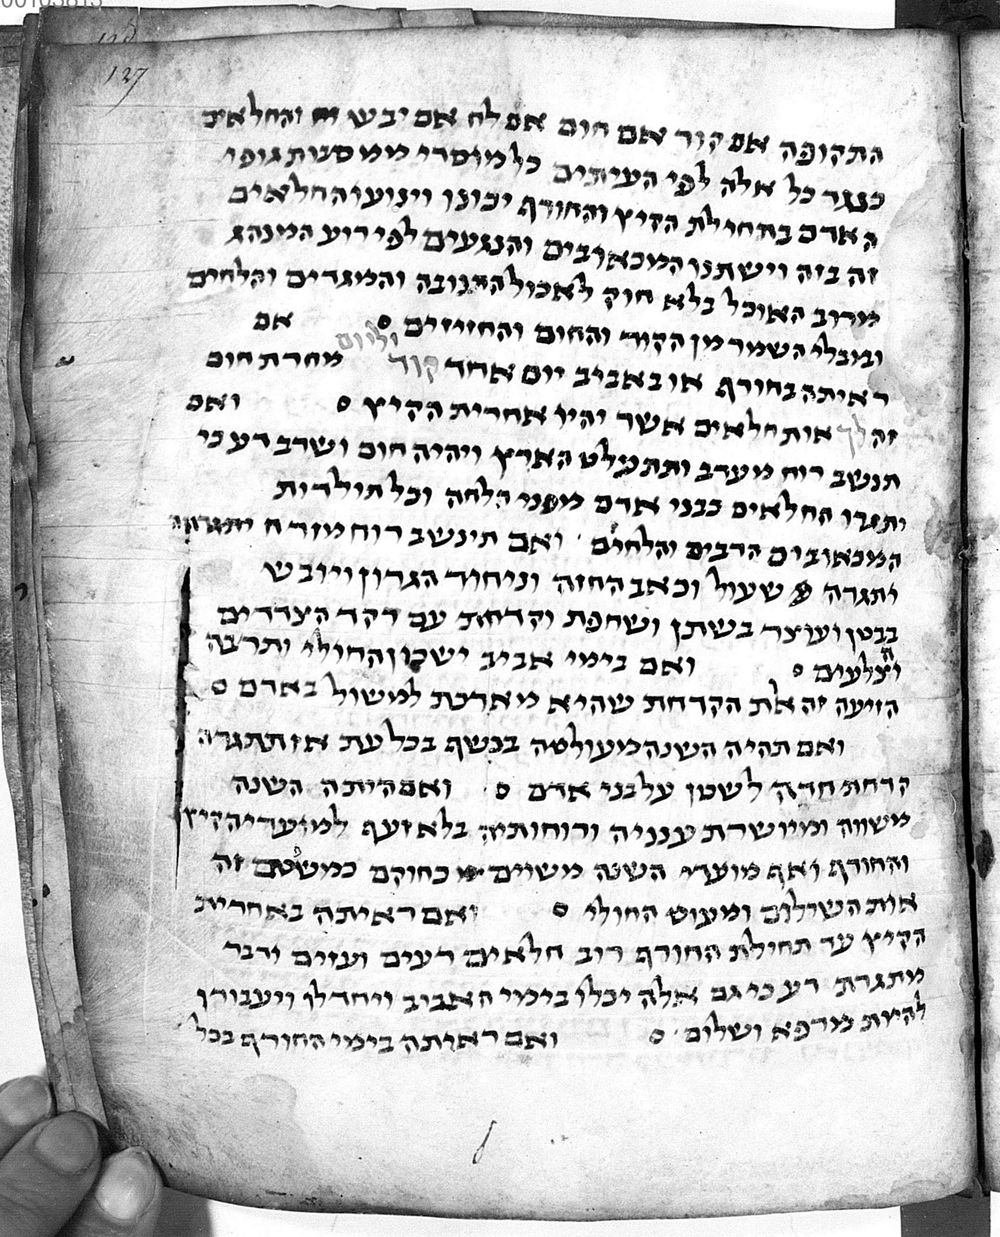 127
התקופה אם קור אם חום אם לח אם יבש והחלאים
כנגד כל אלה לפי העיתים כל מוסרי ממסכות גופי
האדם בתחילת הקיץ והחורף יכונו וינועו החלאים
זה בזה וישתנו המכאובים והנגעים לפי רוע המנהג
מרוב האוכל בלא חוק לאכול התנובה והמגדים והלחים
ומבלי השמר מן הקור והחום והחזיזים אם
ראיתה בחורף או באביב יום אחד קור וליום מחרת חום
זה לך אות חלאים אשר יהיו אחרית הקיץ ואם
תנשב רוח מערב ותתעלט הארץ ויהיה חום ושרב רע כי
יתגרו החלאים בבני אדם מפני הלחה וכל תולדות
המכאובים הרבים והלחים ואם תינשב רוח מזרח
ותגרה שעול וכאב החזה וניחור הגרון ויובש
בבטן ועוצר בשתן ושחפת וקדחת עם דקר הצדדים
והצלעים ואם בימי אביב ישכון החולי ותרבה
הזיעה זה אות הקדחת שהיא מארכת למשול באדם
ואם תהיה השנה מעולטה בנשף בכל עת אז תתגרה
קדחת חדה לשטן על בני אדם ואם היתה השנה
משווה ומיושרת ענניה ורוחותיה בלא זעף למועדי הקיץ
והחורף ואף מועדי השנה משויים כחוקם כמשפטם זה
אות השילום ומעוט החולי ואם ראיתה באחרית
הקיץ עד תחילת החורף רוב חלאים רעים ועזים ודבר
מתגרת רע כי גם אלה יכלו בימי האביב ויחדלו ויעבורון
להיות מרפא ושלום ואם ראיתה בימי החורף בכל